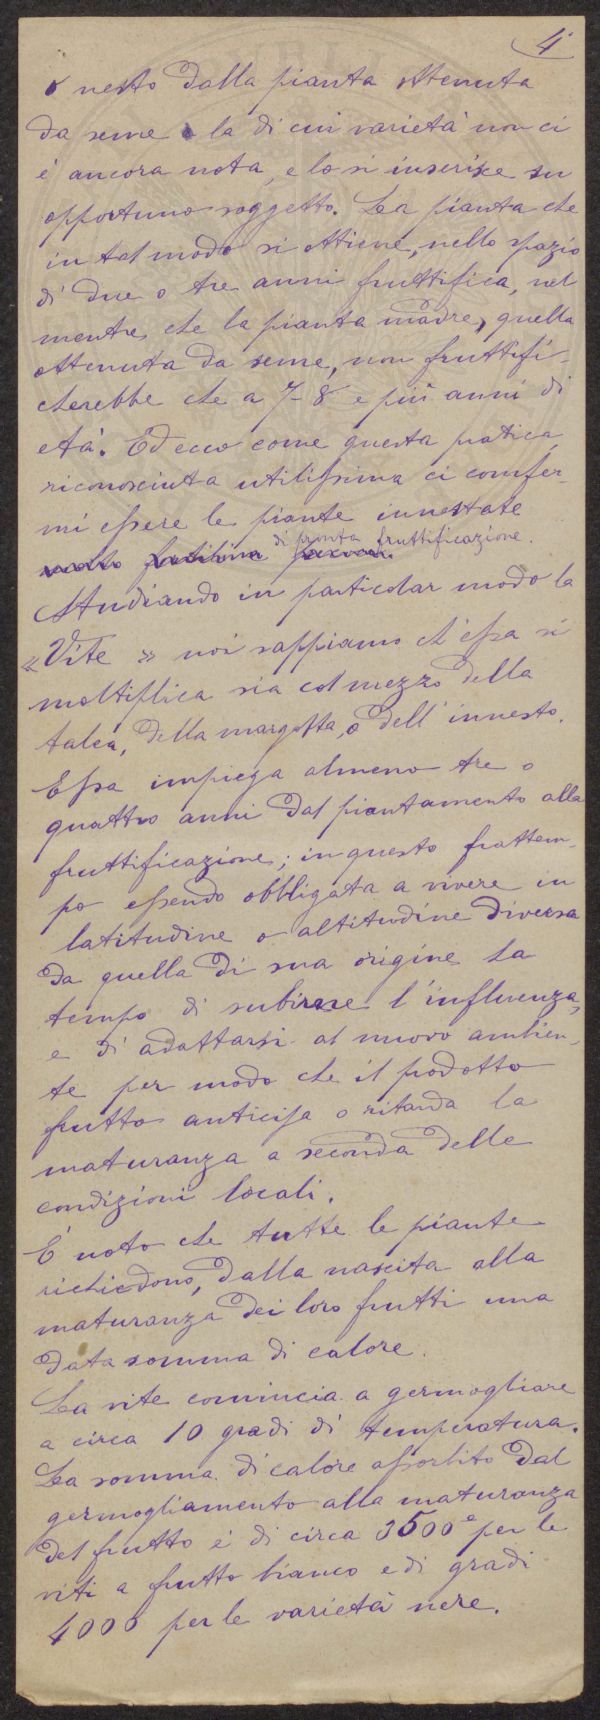 4
o nesto dalla pianta ottenuta
da seme e la di cui varietà non ci
è ancora nota, e lo si inserisce su
opportuno soggetto. La pianta che
in tal modo si ottiene, nello spazio
di due o tre anni fruttifica, nel
mentre che la pianta madre, quella
ottenuta da seme, non fruttifi-
cherebbe che a 7-8 e più anni di
età. Ed ecco come questa pratica
riconosciuta utilissima ci confer-
mi essere le piante innestate
di pronta fruttificazione.
Studiando in particolar modo la
« Vite » noi sappiamo ch'essa si
moltiplica sia col mezzo della
talea, della margotta, o dell'innesto.
Essa impiega almeno tre o
quattro anni dal piantamento alla
fruttificazione; in questo frattem-
po essendo obbligata a vivere in
latitudine o altitudine diversa
da quella di sua origine ha
tempo di subirne l'influenza,
e di adattarsi al nuovo ambien-
te per modo che il prodotto
frutto anticipa o ritarda la
maturanza a seconda delle
condizioni locali.
È noto che tutte le piante
richiedono, dalla nascita alla
maturanza dei loro frutti una
data somma di calore.
La vite comincia a germogliare
a circa 10 gradi di temperatura.
La somma di calore assorbito dal
germogliamento alla maturanza
del frutto è di circa 3500° per le
viti a frutto bianco e di gradi
4000 per le varietà nere.